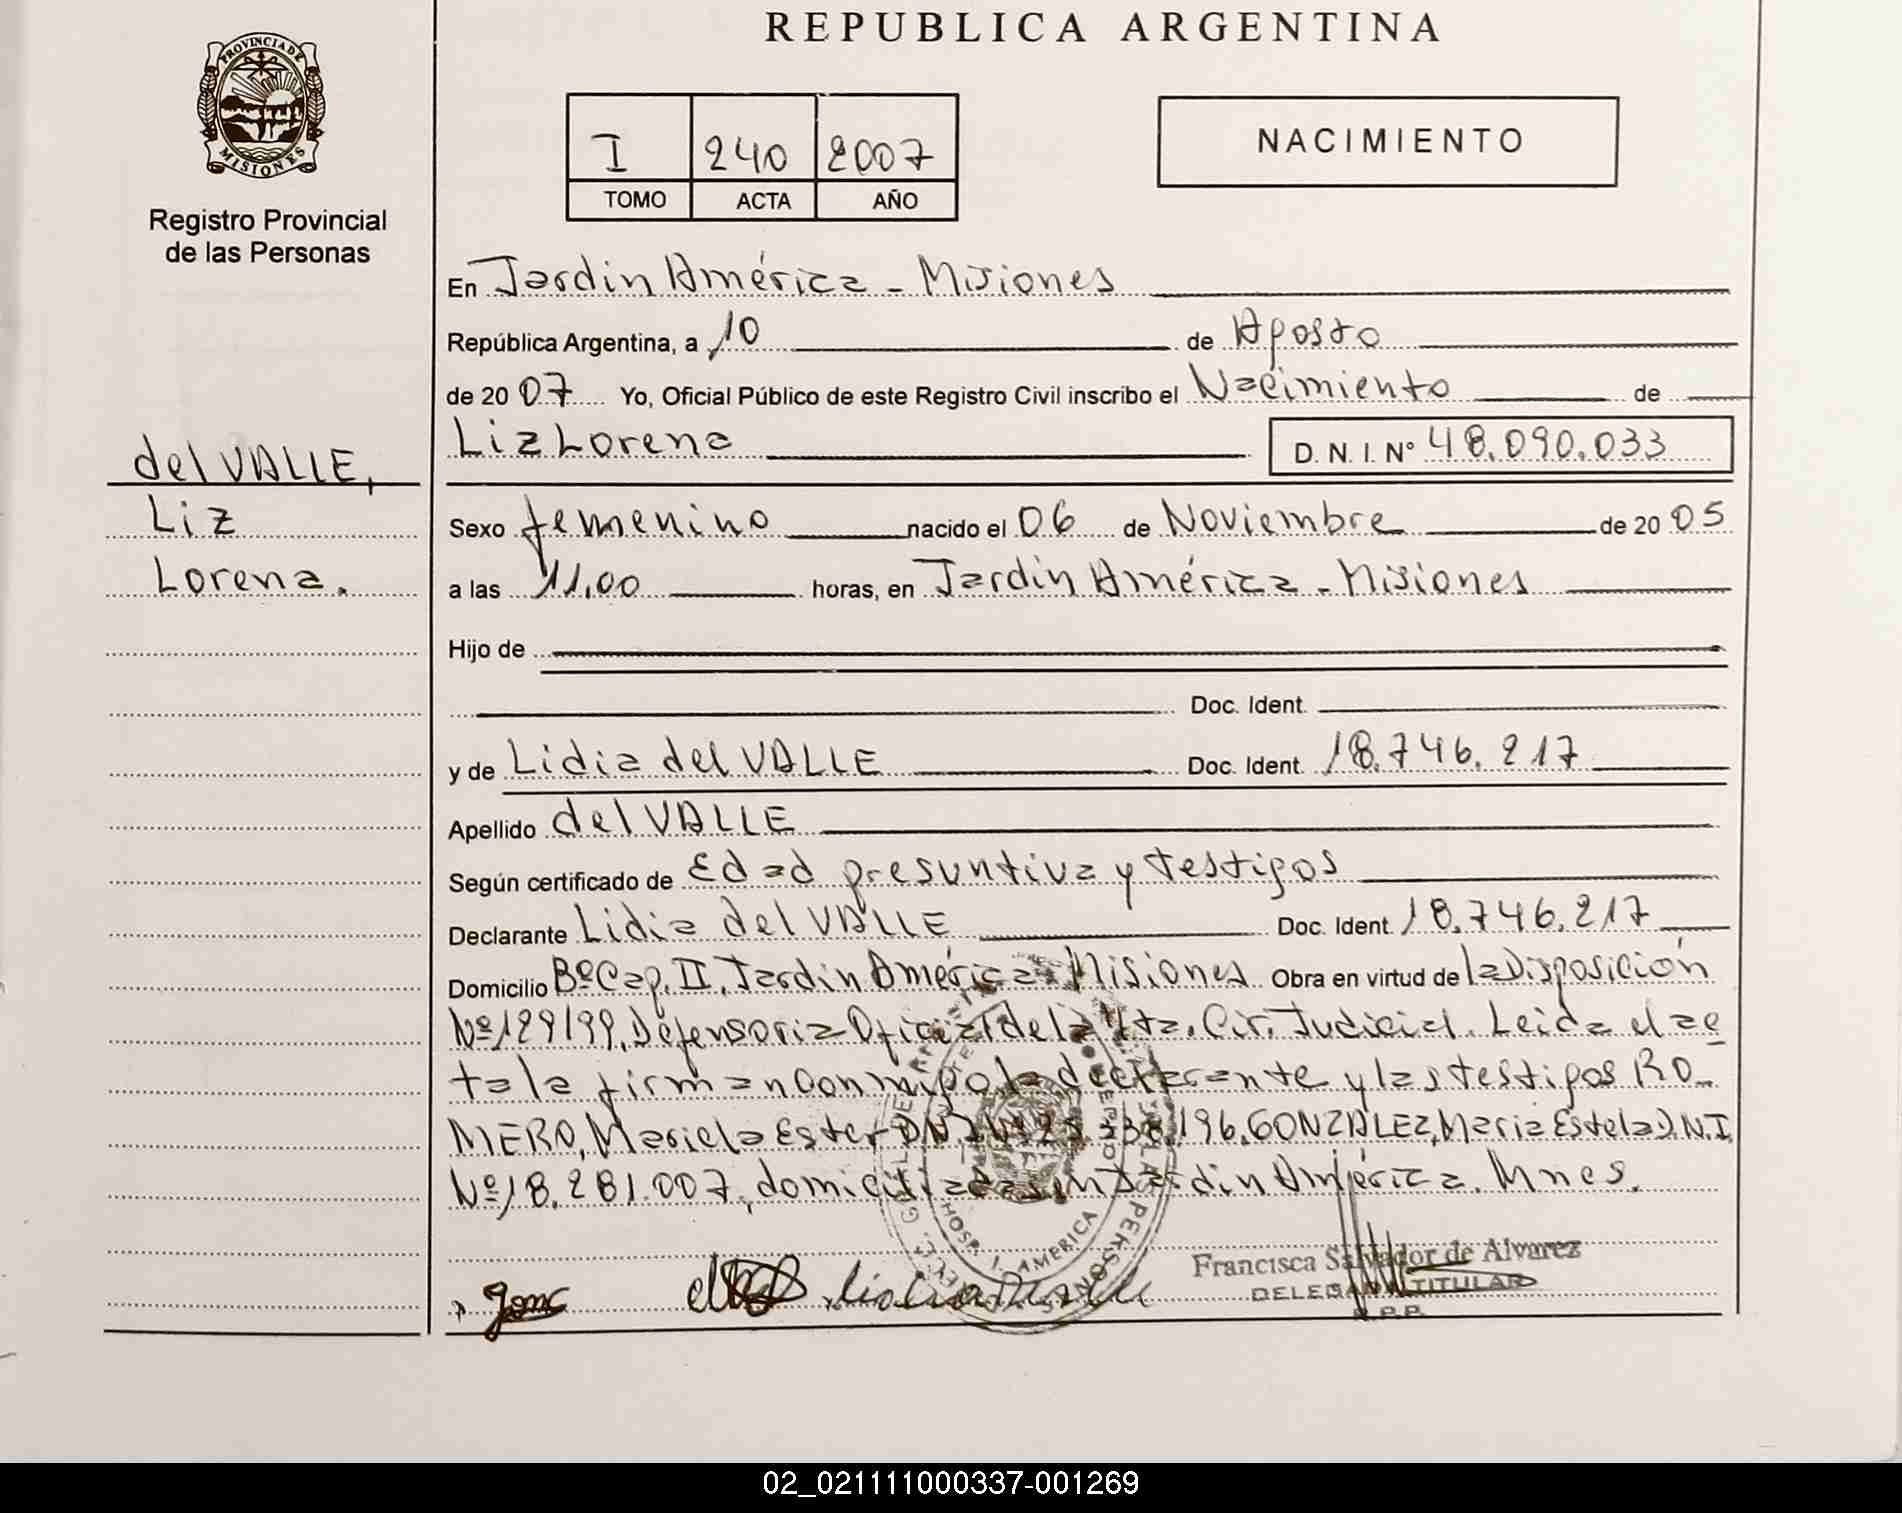 REPUBLICA ARGENTINA
PROVINCIA DE
MISIONES
Registro Provincial
de las Personas
I 240 2007
TOMO ACTA AÑO
NACIMIENTO
En Jardín América - Misiones
República Argentina, a 10 de Agosto
de 2007 Yo, Oficial Público de este Registro Civil inscribo el Nacimiento de
Liz Lorena D. N. I. Nº 48.090.033
del VALLE,
Liz
Lorena.
Sexo femenino nacido el 06 de Noviembre de 2005
a las 11,00 horas, en Jardín América - Misiones
Hijo de
Doc. Ident.
y de Lidia del VALLE Doc. Ident. 18.746.217
Apellido del VALLE
Según certificado de Edad presuntiva y testigos
Declarante Lidia del VALLE Doc. Ident. 18.746.217
Domicilio Bº Cap. II, Jardín América - Misiones Obra en virtud de la Disposición
Nº 129/99, Defensoria Oficial de la 4ta. Cir. Judicial. Leida el ac
ta la firman conmigo la declarante y las testigos RO-
MERO, Mariela Ester DNI Nº .196. GONZALEZ, Maria Estela D.N.I.
Nº 18.281.007, domiciliadas en Jardín América. Mnes.
HOSP. J. AMERICA
Francisca Salvador de Alvarez
DELEGADA TITULAR
R.P.P.
02_021111000337-001269